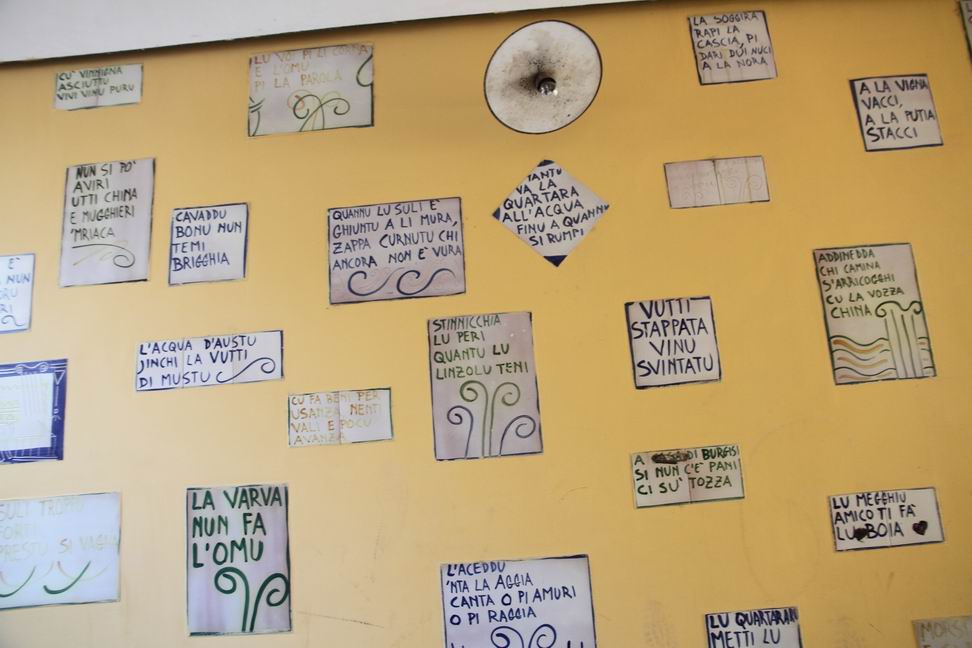 CU' VINNIGNA
ASCIUTTU
VIVI VINU PURU
LU VO' PI LI CORNA
E L'OMU
PI LA PAROLA
LA SOGGIRA
RAPI LA
CASCIA, PI
DARI DUI NUCI
A LA NORA
A LA VIGNA
VACCI,
A LA PUTIA
STACCI
NUN SI PO'
AVIRI
UTTI CHINA
E MUGGHIERI
'MRIACA
CAVADDU
BONU NUN
TEMI
BRIGGHIA
QUANNU LU SULI E'
GHIUNTU A LI MURA,
ZAPPA CURNUTU CHI
ANCORA NON E' VURA
TANTU
VA LA
QUARTARA
ALL'ACQUA
FINU A QUANNU
SI RUMPI
ADDINEDDA
CHI CAMINA
S'ARRICOGGHI
CU LA VOZZA
CHINA
E'
NUN
RI
L'ACQUA D'AUSTU
JINCHI LA VUTTI
DI MUSTU
STINNICCHIA
LU PERI
QUANTU LU
LINZOLU TENI
VUTTI
STAPPATA
VINU
SVINTATU
CU FA BENI PER
USANZA NENTI
VALI E POCU
AVANZA
A CASA DI BURGISI
SI NUN C'E' PANI
CI SU' TOZZA
SULI TROPPU
FORTI
PRESTU SI VAGNA
LA VARVA
NUN FA
L'OMU
LU MEGGHIU
AMICO TI FA'
LU BOIA
L'ACEDDU
'NTA LA AGGIA
CANTA O PI AMURI
O PI RAGGIA
LU QUARTARARU
METTI LU
MORSI